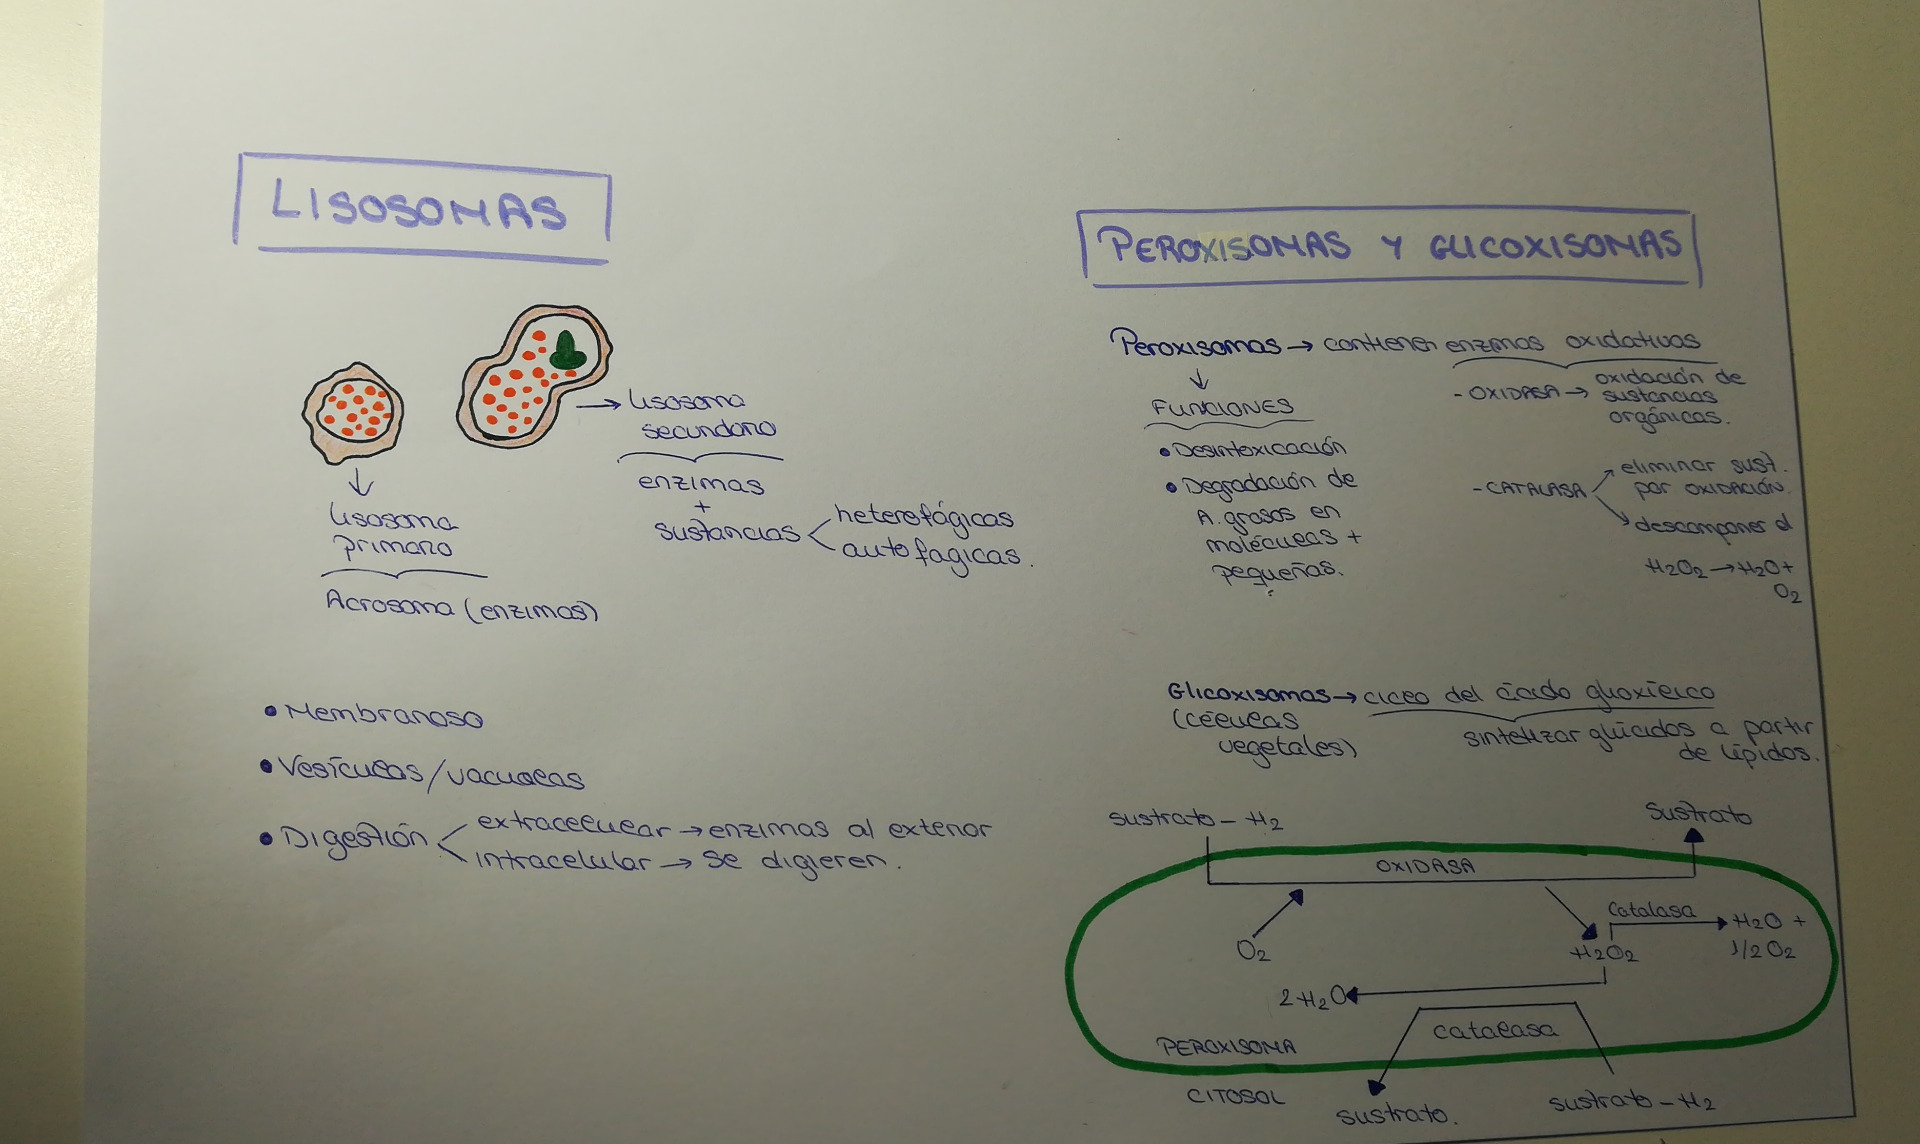 LISOSOMAS
lisosoma
primario
Acrosoma (enzimas)
lisosoma
secundario
enzimas
+
sustancias
heterofágicas
autofagicas.
• Membranoso
• Vesículas/vacuolas
• Digestión
extracelular → enzimas al exterior
intracelular → se digieren.
PEROXISOMAS Y GLICOXISOMAS
Peroxisomas → contienen enzimas oxidativos
FUNCIONES
• Desintoxicación
• Degradación de
A. grasos en
moléculas +
pequeñas.
- OXIDASA → oxidación de
sustancias
orgánicas.
- CATALASA
eliminar sust.
por OXIDACIÓN.
descomponer el
H2O2 → H2O +
O2
Glicoxisomas → ciclo del ácido glioxílico
(células
vegetales)
sintetizar glúcidos a partir
de lípidos.
sustrato - H2
sustrato
OXIDASA
O2
Catalasa
H2O2
H2O +
1/2 O2
2 H2O
catalasa
PEROXISOMA
CITOSOL
sustrato.
sustrato - H2